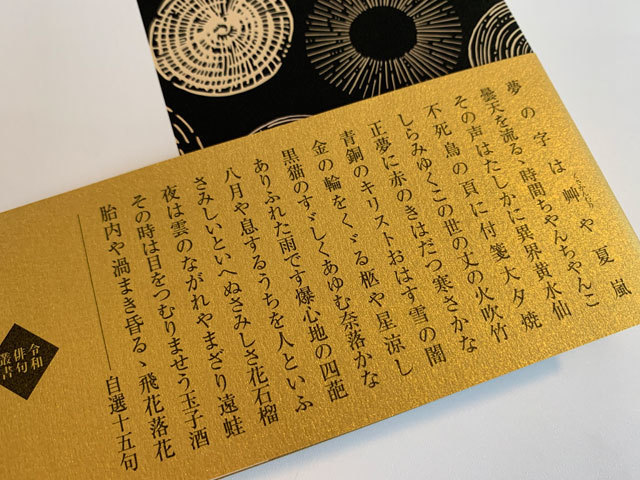 夢の字は艸や夏嵐
曇天を流るゝ時間ちやんちやんこ
その声はたしかに異界黄水仙
不死鳥の頁に付箋大夕焼
しらみゆくこの世の丈の火吹竹
正夢に赤のきはだつ寒さかな
青銅のキリストおはす雪の闇
金の輪をくゞる柩や星涼し
黒猫のすゞしくあゆむ奈落かな
ありふれた雨です爆心地の四葩
八月や息するうちを人といふ
さみしいといへぬさみしさ花石榴
夜は雲のながれやまざり遠蛙
その時は目をつむりませう玉子酒
胎内や渦まき昏るゝ飛花落花
自選十五句
令和
俳句
叢書